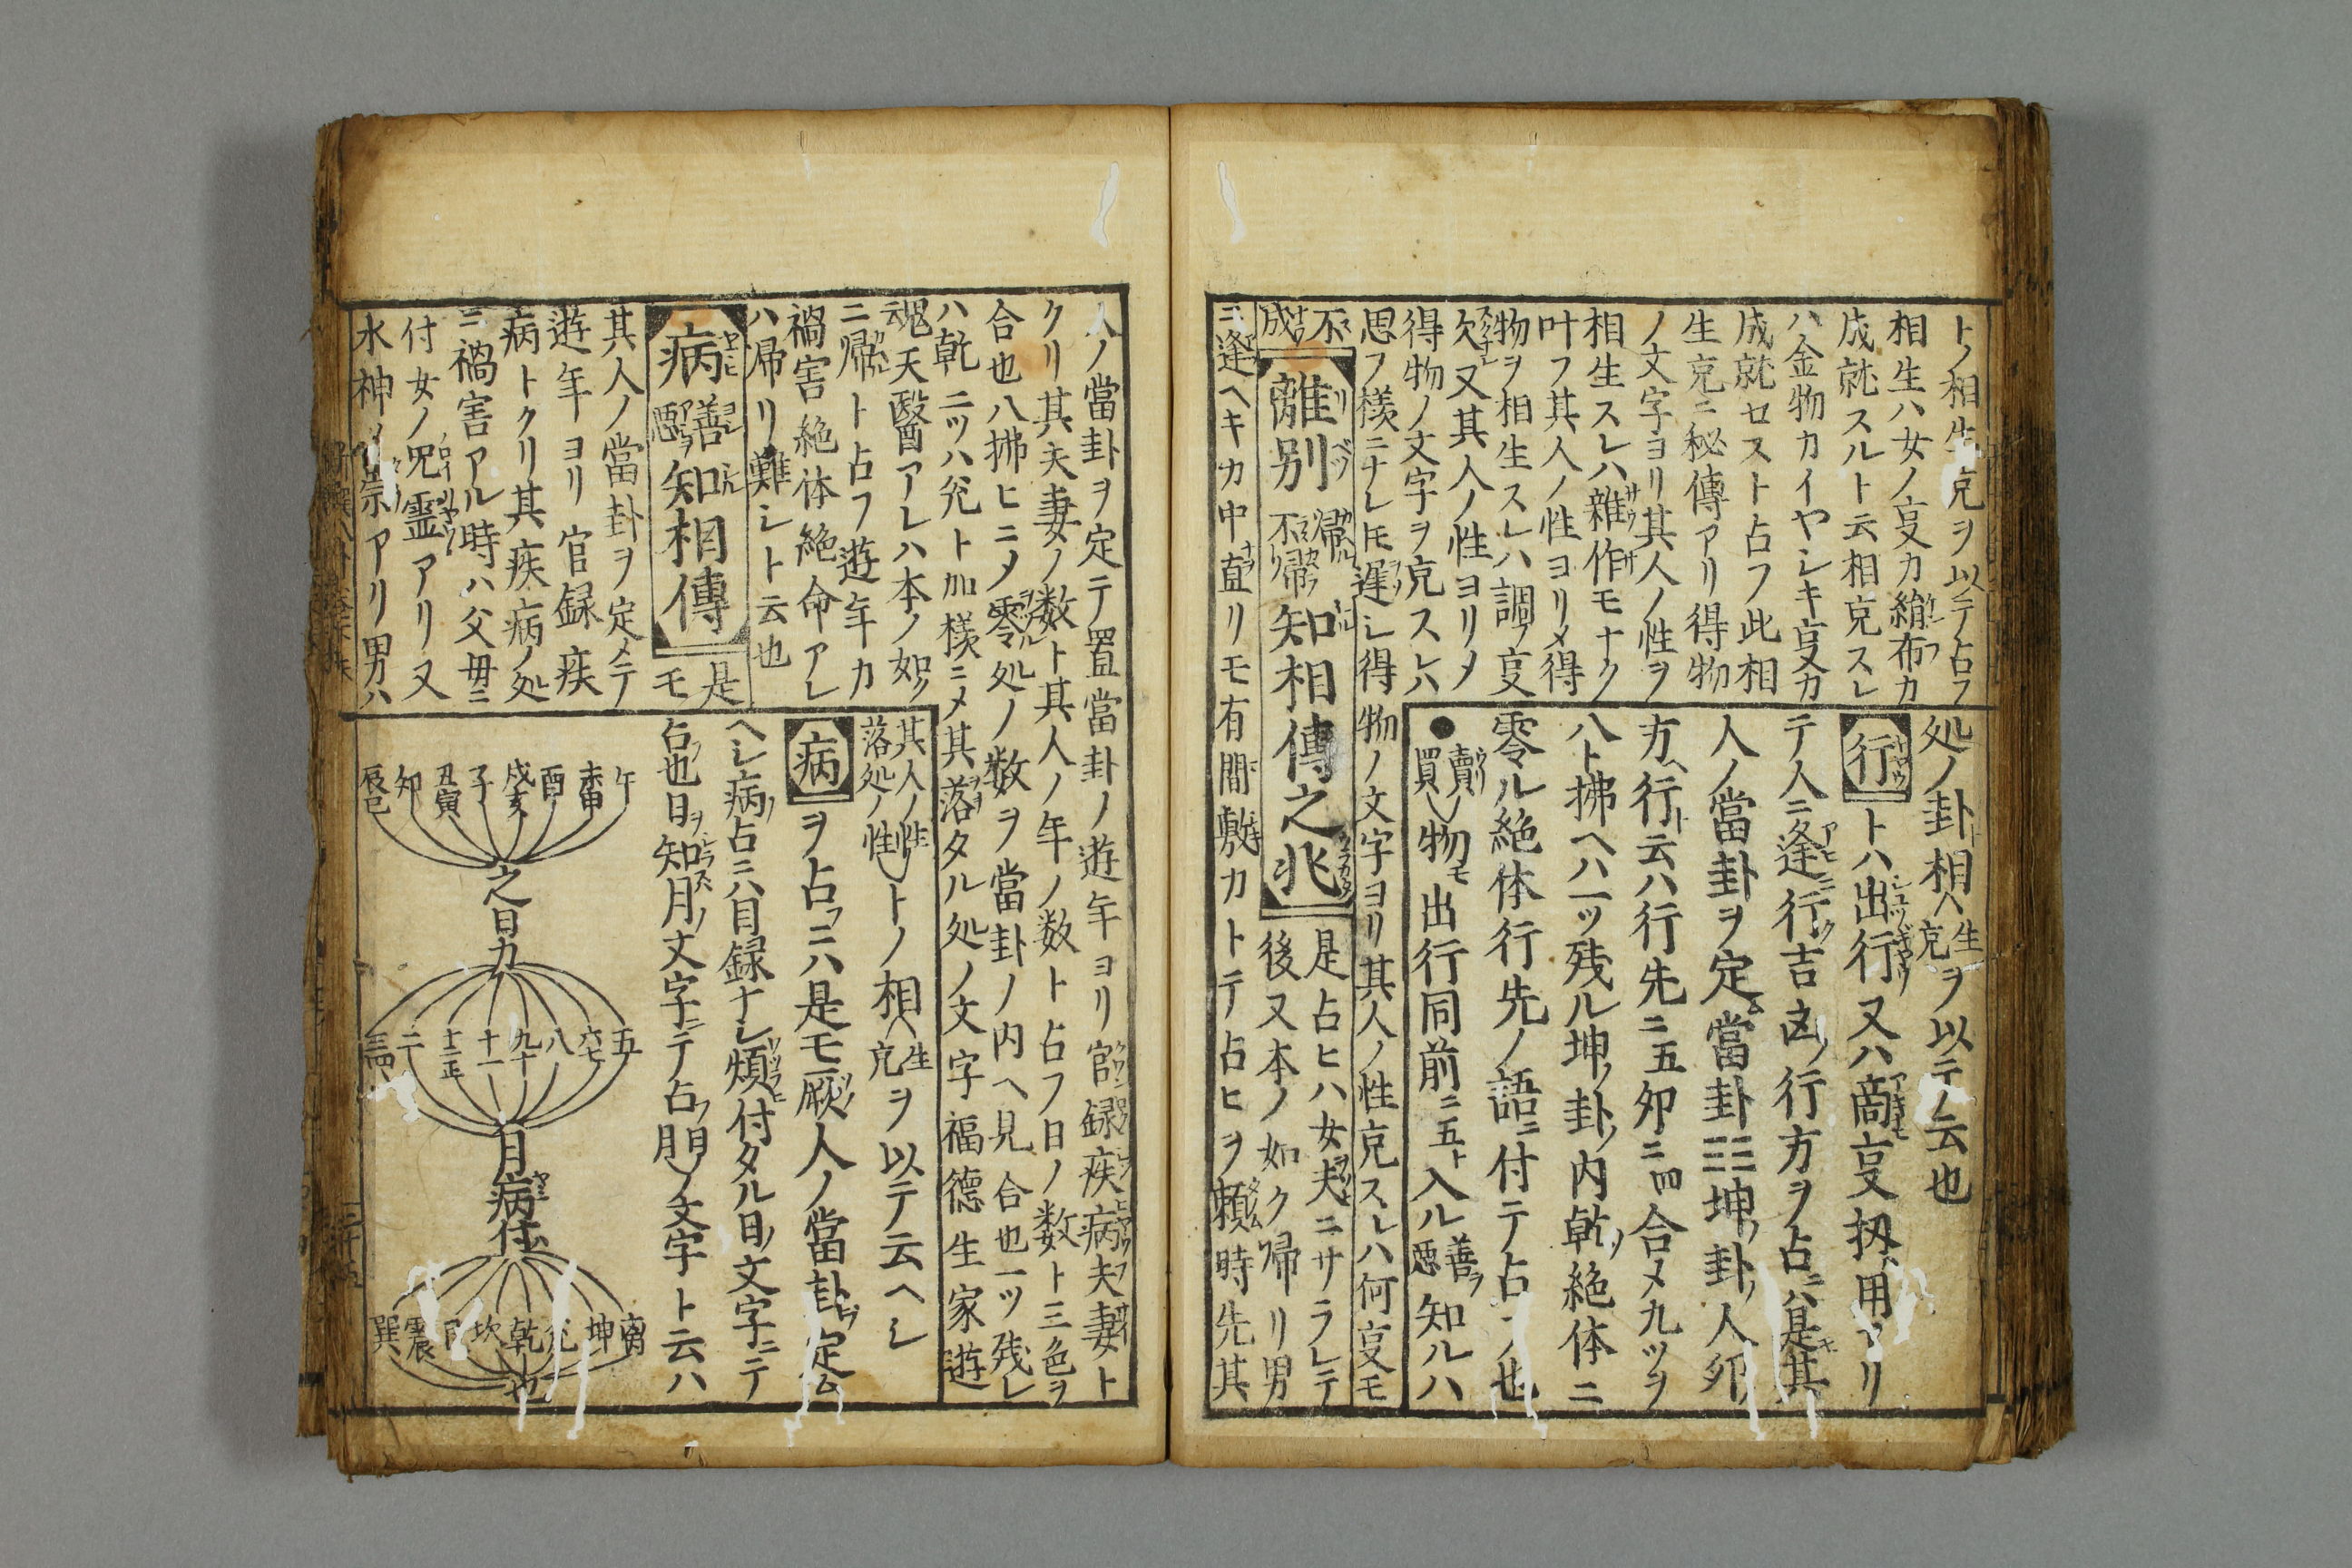 トノ相生克ヲ以テ占フ
相生ハ女ノ㕝カ絹布カ
成就スルト云相克スレ
ハ金物カイヤシキ㕝カ
成就セスト占フ此相
生克ニ秘傳アリ得物
ノ文字ヨリ其人ノ性ヲ
相生スレハ雜作モナク
叶フ其人ノ性ヨリメ得
物ヲ相生スレハ調フ㕝
欠又其人ノ性ヨリメ
得物ノ文字ヲ克スレハ
思フ様ニナレ𪜈遅シ得物ノ文字ヨリ其人ノ性克スレハ何㕝モ
不成
離別帰不帰知相傳之兆
是占ヒハ女夫ニサラレテ
後又本ノ如ク帰リ男
ニ逢ヘキカ中直リモ有間敷カトテ占ヒヲ頼時先其
処ノ卦ト相生克ヲ以テノ云也
行トハ出行又ハ啇㕝扨用アリ
テ人ニ逢ニ行ク吉凶ノ行方ヲ占ニハ是其
人ノ當卦ヲ定ム當卦☷坤ノ卦ノ人夘ノ
方ヘ行ト云ハ行先ニ五夘ニ四合メ九ツヲ
八ト拂ヘハ一ツ残ル坤ノ卦ノ内乾ノ絶体ニ
零ル絶体行先ノ語ニ付テ占フ也
●賣買ノ物モ出行同前ニ五ト入ル善悪ヲ知ルハ
人ノ當卦ヲ定テ置當卦ノ遊年ヨリ官録疾病夫妻ト
クリ其夫妻ノ数ト其人ノ年ノ数ト占フ日ノ数ト三色ヲ
合也八拂ヒニメ零ル処ノ数ヲ當卦ノ内ヘ見合也一ツ残レ
ハ乾二ツハ兊ト加様ニメ其落タル処ノ文字福德生家遊
魂天醫アレハ本ノ如ク
ニ帰ト占フ遊年カ
禍害絶体絶命アレ
ハ帰リ難シト云也
病善悪知相傳
是モ
其人ノ當卦ヲ定メテ
遊年ヨリ官録疾
病トクリ其疾病ノ処
ニ禍害アル時ハ父毋ニ
付女ノ呪霊アリ又
水神ノ祟アリ男ハ
其人ノ性落処ノ性トノ相生克ヲ以テ云ヘシ
病ヲ占フニハ是モ厥人ノ當卦ヲ定ム
ヘシ病ノ占ニハ目録ナレ煩付タル日ノ文字ニテ
占フ也日ヲ知ラスハ月ノ文字ニテ占フ日月ノ文字ト云ハ
午
未申
酉
戌亥
子
丑寅
卯
辰巳
之日力
五
六七
八
九十
十一
十二正
二
三四
月病任
離
坤
兊
乾
坎
艮
震
巽
也